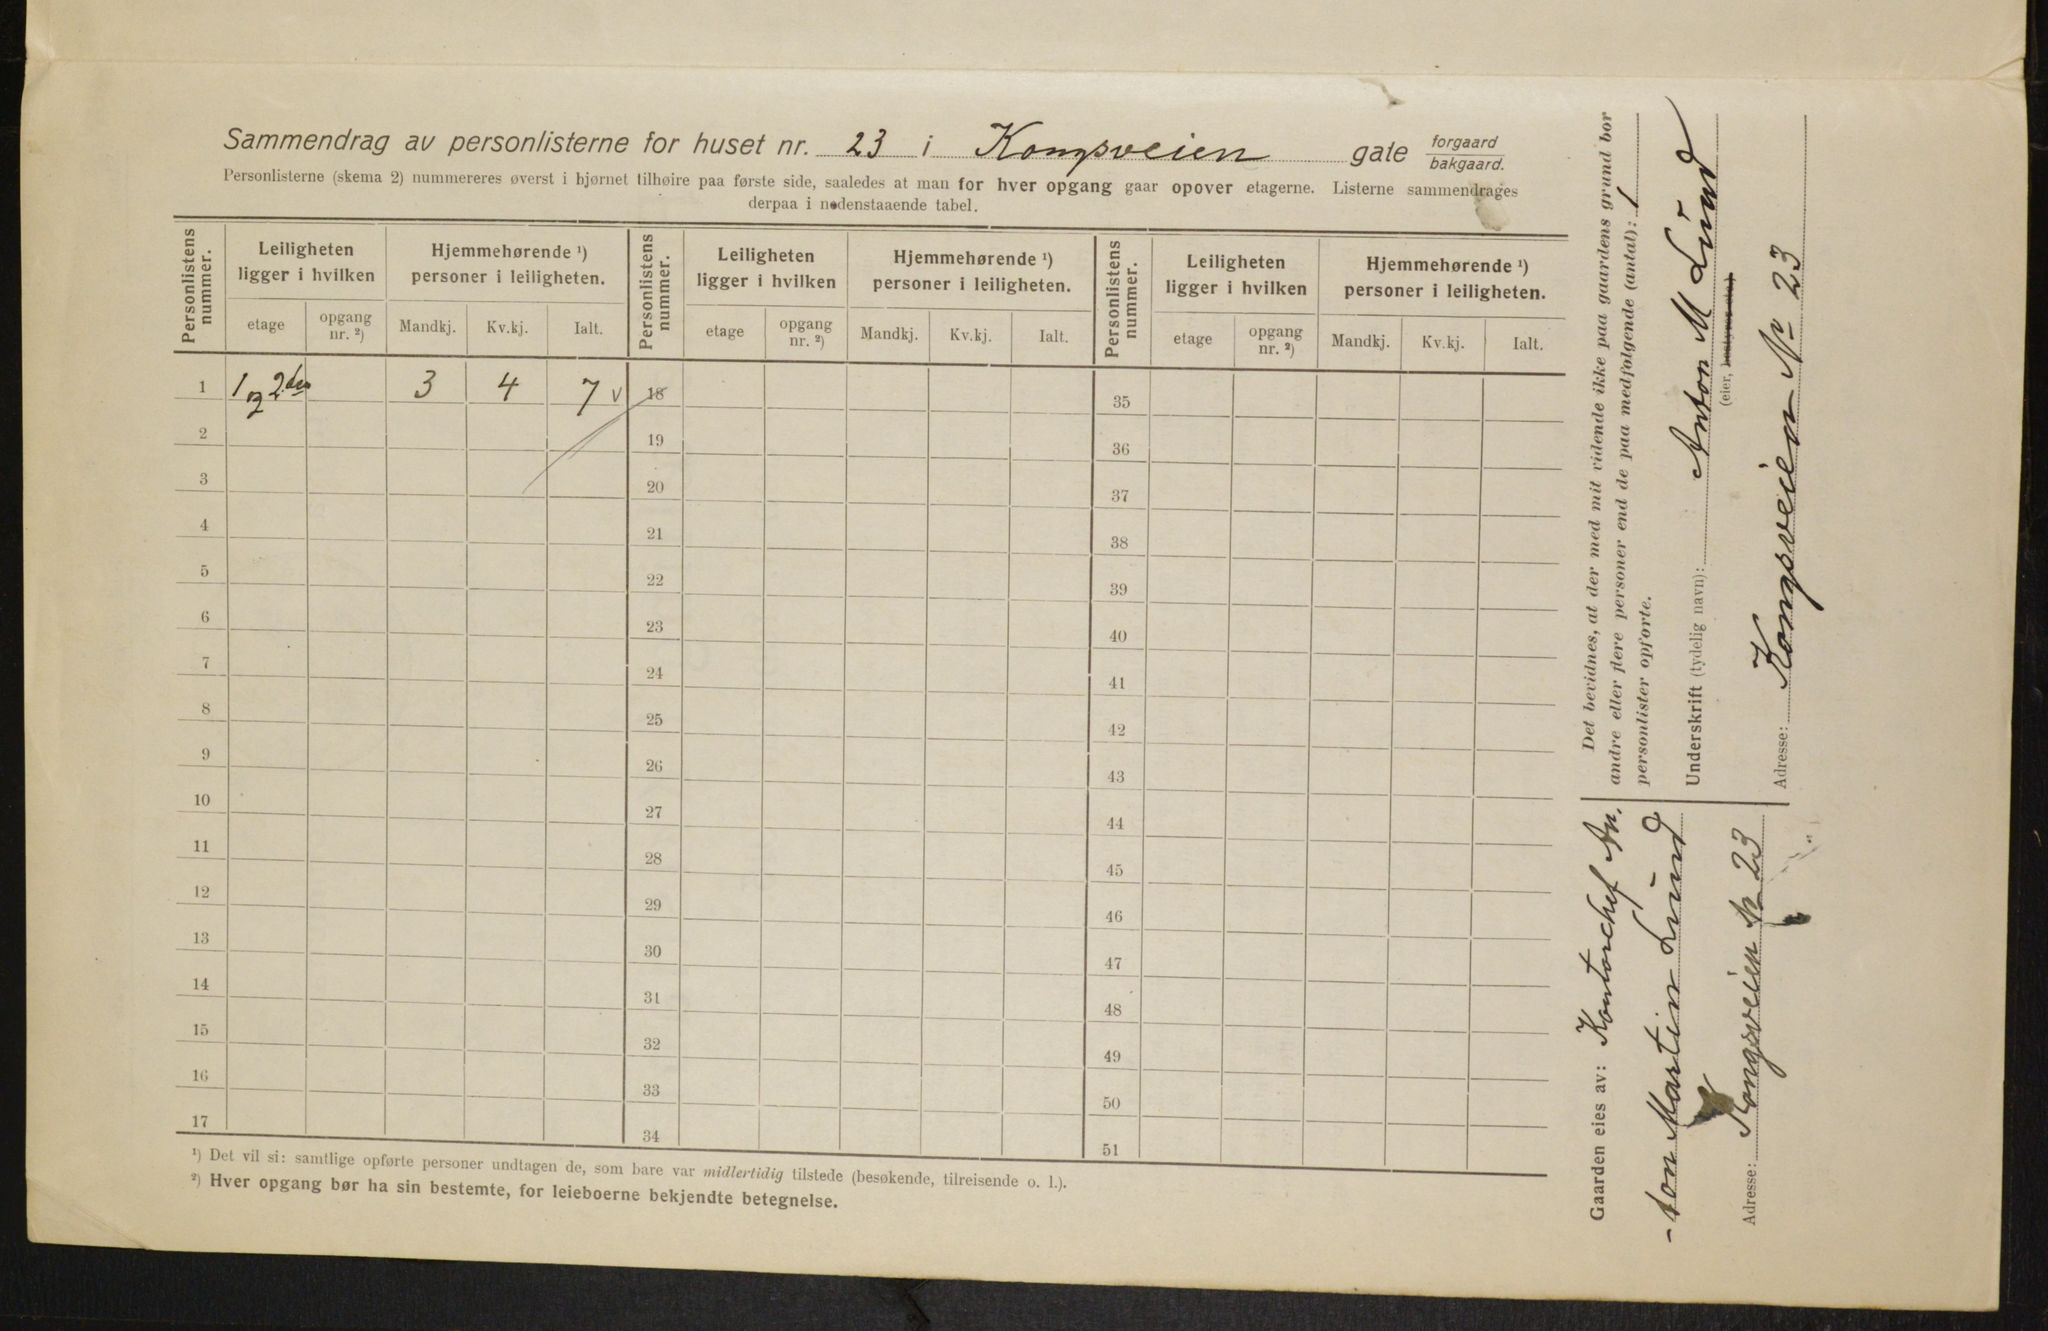 Sammendrag av personlisterne for huset nr. 23 i Kongsveien gate forgaard bakgaard.
Personlisterne (skema 2) nummereres øverst i hjørnet tilhøire paa første side, saaledes at man for hver opgang gaar opover etagerne. Listerne sammendrages
derpaa i nedenstaaende tabel.
Personlistens nummer. Leiligheten ligger i hvilken Hjemmehørende ¹) personer i leiligheten. Personlistens nummer. Leiligheten ligger i hvilken Hjemmehørende ¹) personer i leiligheten. Personlistens nummer. Leiligheten ligger i hvilken Hjemmehørende ¹) personer i leiligheten.
etage opgang nr. ²) Mandkj. Kv.kj. Ialt. etage opgang nr. ²) Mandkj. Kv.kj. Ialt. etage opgang nr. ²) Mandkj. Kv.kj. Ialt.
1 1 og 2den 3 4 7 v 18 35
2 19 36
3 20 37
4 21 38
5 22 39
6 23 40
7 24 41
8 25 42
9 26 43
10 27 44
11 28 45
12 29 46
13 30 47
14 31 48
15 32 49
16 33 50
17 34 51
¹) Det vil si: samtlige opførte personer undtagen de, som bare var midlertidig tilstede (besøkende, tilreisende o. l.).
²) Hver opgang bør ha sin bestemte, for leieboerne bekjendte betegnelse.
Det bevidnes, at der med mit vidende ikke paa gaardens grund bor
andre eller flere personer end de paa medfølgende (antal): 1
personlister opførte.
Underskrift (tydelig navn): Anton M Lund
(eier, bestyrer etc.)
Adresse: Kongsveien No 23
Gaarden eies av: Kontorchef An,
-ton Martin Lund
Adresse: Kongsveien No 23